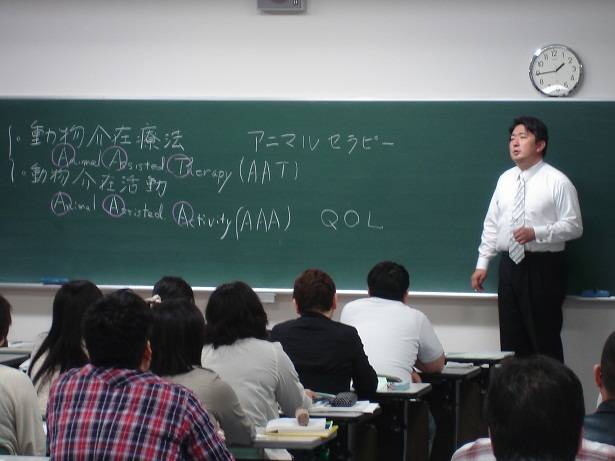 ・動物介在療法 アニマルセラピー
Animal Assisted Therapy (AAT)
・動物介在活動
Animal Assisted Activity (AAA) QOL